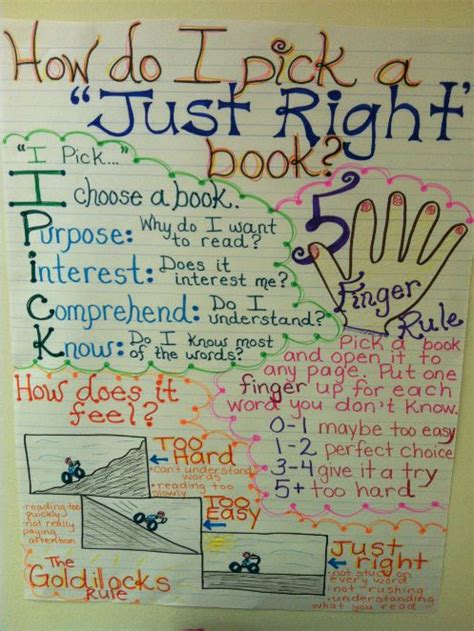 How do I pick a
"Just Right"
book?
"I Pick..."
I choose a book.
Purpose: Why do I want
to read?
Interest: Does it
interest me?
Comprehend: Do I
understand?
Know: Do I know most
of the words?
5
Finger
Rule
Pick a book
and open it to
any page. Put one
finger up for each
word you don't know.
0-1 maybe too easy
1-2 perfect choice
3-4 give it a try
5+ too hard
How does it
feel?
Too
Hard
• can't understand
words
• reading too
slowly
Too
Easy
• reading too
quickly
• not really
paying
attention
Just
right
• not stuck on
every word
• not rushing
• understanding
what you read
The
Goldilocks
Rule